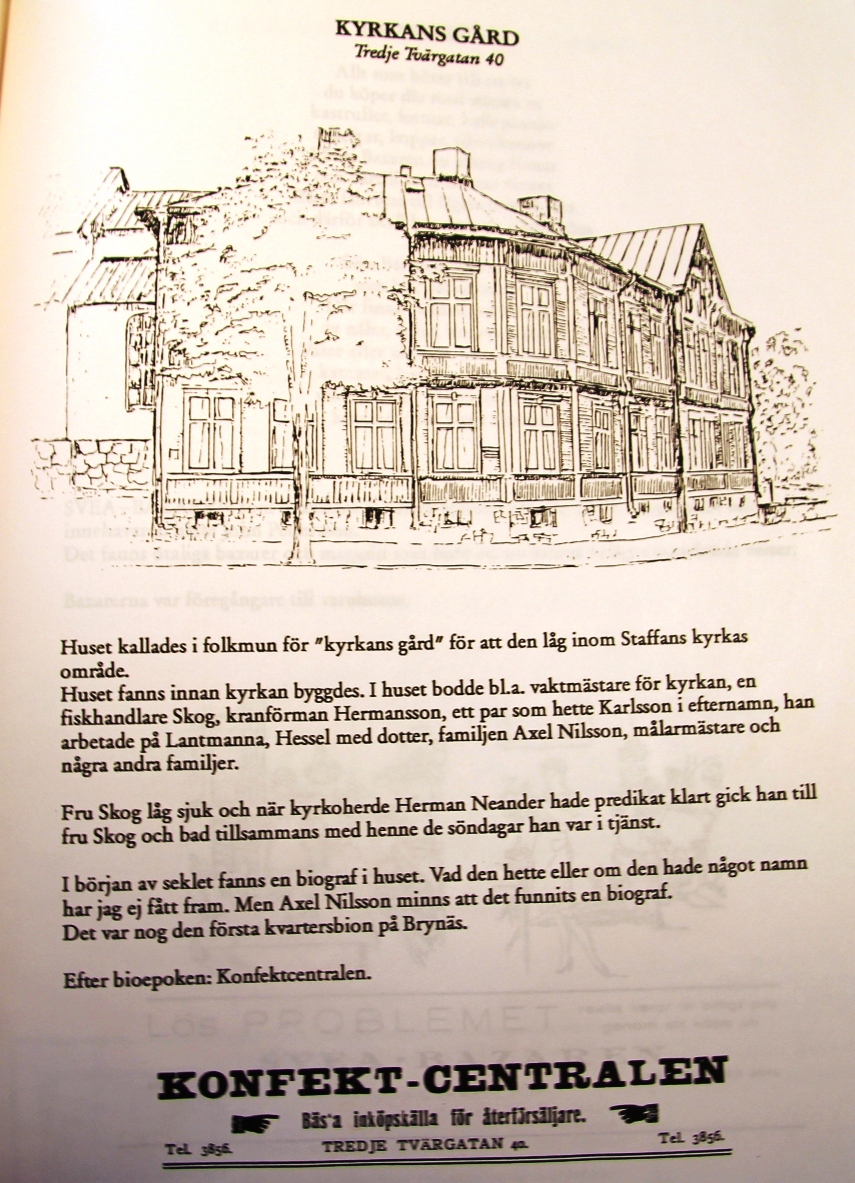 KYRKANS GÅRD
Tredje Tvärgatan 40
Huset kallades i folkmun för "kyrkans gård" för att den låg inom Staffans kyrkas
område.
Huset fanns innan kyrkan byggdes. I huset bodde bl.a. vaktmästare för kyrkan, en
fiskhandlare Skog, kranförman Hermansson, ett par som hette Karlsson i efternamn, han
arbetade på Lantmanna, Hessel med dotter, familjen Axel Nilsson, målarmästare och
några andra familjer.
Fru Skog låg sjuk och när kyrkoherde Herman Neander hade predikat klart gick han till
fru Skog och bad tillsammans med henne de söndagar han var i tjänst.
I början av seklet fanns en biograf i huset. Vad den hette eller om den hade något namn
har jag ej fått fram. Men Axel Nilsson minns att det funnits en biograf.
Det var nog den första kvartersbion på Brynäs.
Efter bioepoken: Konfektcentralen.
Lös PROBLEMET
KONFEKT-CENTRALEN
Bäs'a inköpskälla för återförsäljare.
Tel. 3856. TREDJE TVÄRGATAN 40. Tel. 3856.